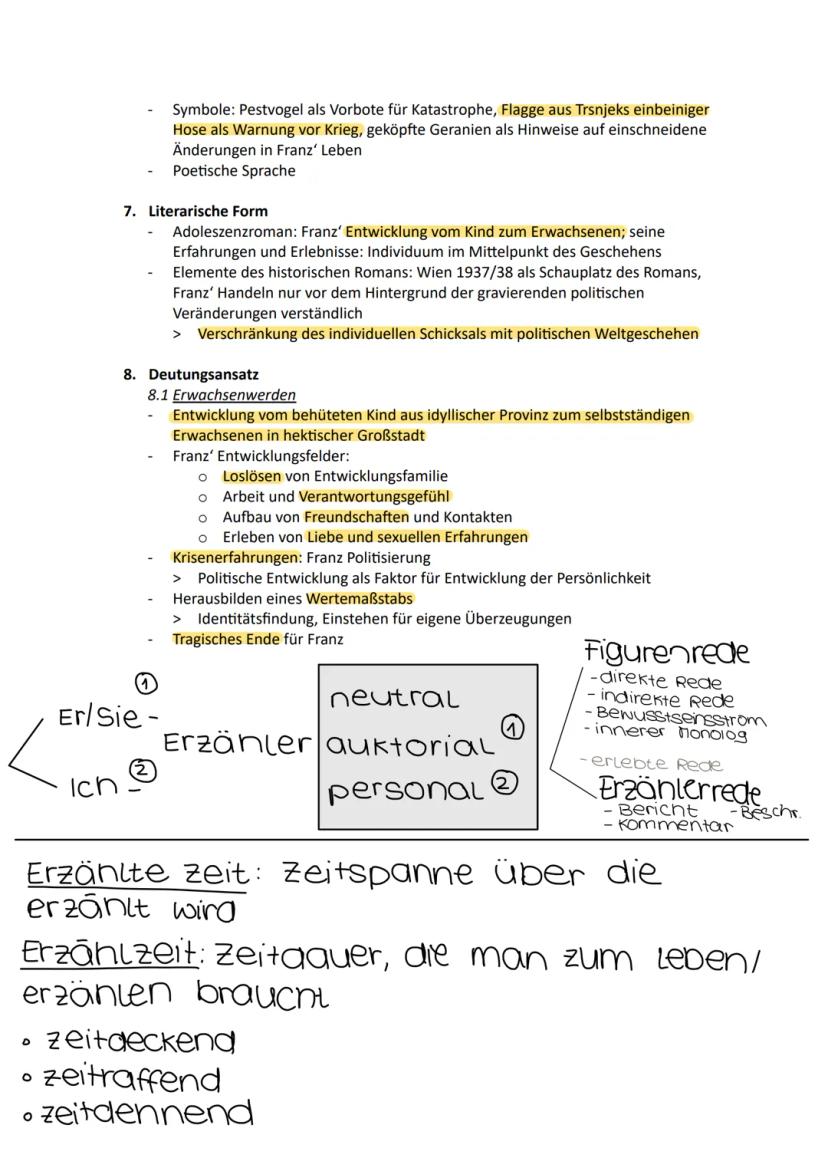 - Symbole: Pestvogel als Vorbote für Katastrophe, Flagge aus Trsnjeks einbeiniger
Hose als Warnung vor Krieg, geköpfte Geranien als Hinweise auf einschneidene
Änderungen in Franz‘ Leben
- Poetische Sprache
7. Literarische Form
- Adoleszenzroman: Franz‘ Entwicklung vom Kind zum Erwachsenen; seine
Erfahrungen und Erlebnisse: Individuum im Mittelpunkt des Geschehens
- Elemente des historischen Romans: Wien 1937/38 als Schauplatz des Romans,
Franz‘ Handeln nur vor dem Hintergrund der gravierenden politischen
Veränderungen verständlich
> Verschränkung des individuellen Schicksals mit politischen Weltgeschehen
8. Deutungsansatz
8.1 Erwachsenwerden
- Entwicklung vom behüteten Kind aus idyllischer Provinz zum selbstständigen
Erwachsenen in hektischer Großstadt
- Franz‘ Entwicklungsfelder:
o Loslösen von Entwicklungsfamilie
o Arbeit und Verantwortungsgefühl
o Aufbau von Freundschaften und Kontakten
o Erleben von Liebe und sexuellen Erfahrungen
- Krisenerfahrungen: Franz Politisierung
> Politische Entwicklung als Faktor für Entwicklung der Persönlichkeit
- Herausbilden eines Wertemaßstabs
> Identitätsfindung, Einstehen für eigene Überzeugungen
- Tragisches Ende für Franz
① Er/Sie -
Ich - ②
Erzähler
neutral
auktorial ①
personal ②
Figurenrede
- direkte Rede
- indirekte Rede
- Bewusstseinsstrom
- innerer Monolog
- erlebte Rede
Erzählerrede
- Bericht - Beschr.
- Kommentar
Erzählte Zeit: Zeitspanne über die
erzählt wird
Erzählzeit: Zeitdauer, die man zum Leben/
erzählen braucht
• zeitdeckend
• zeitraffend
• zeitdehnend